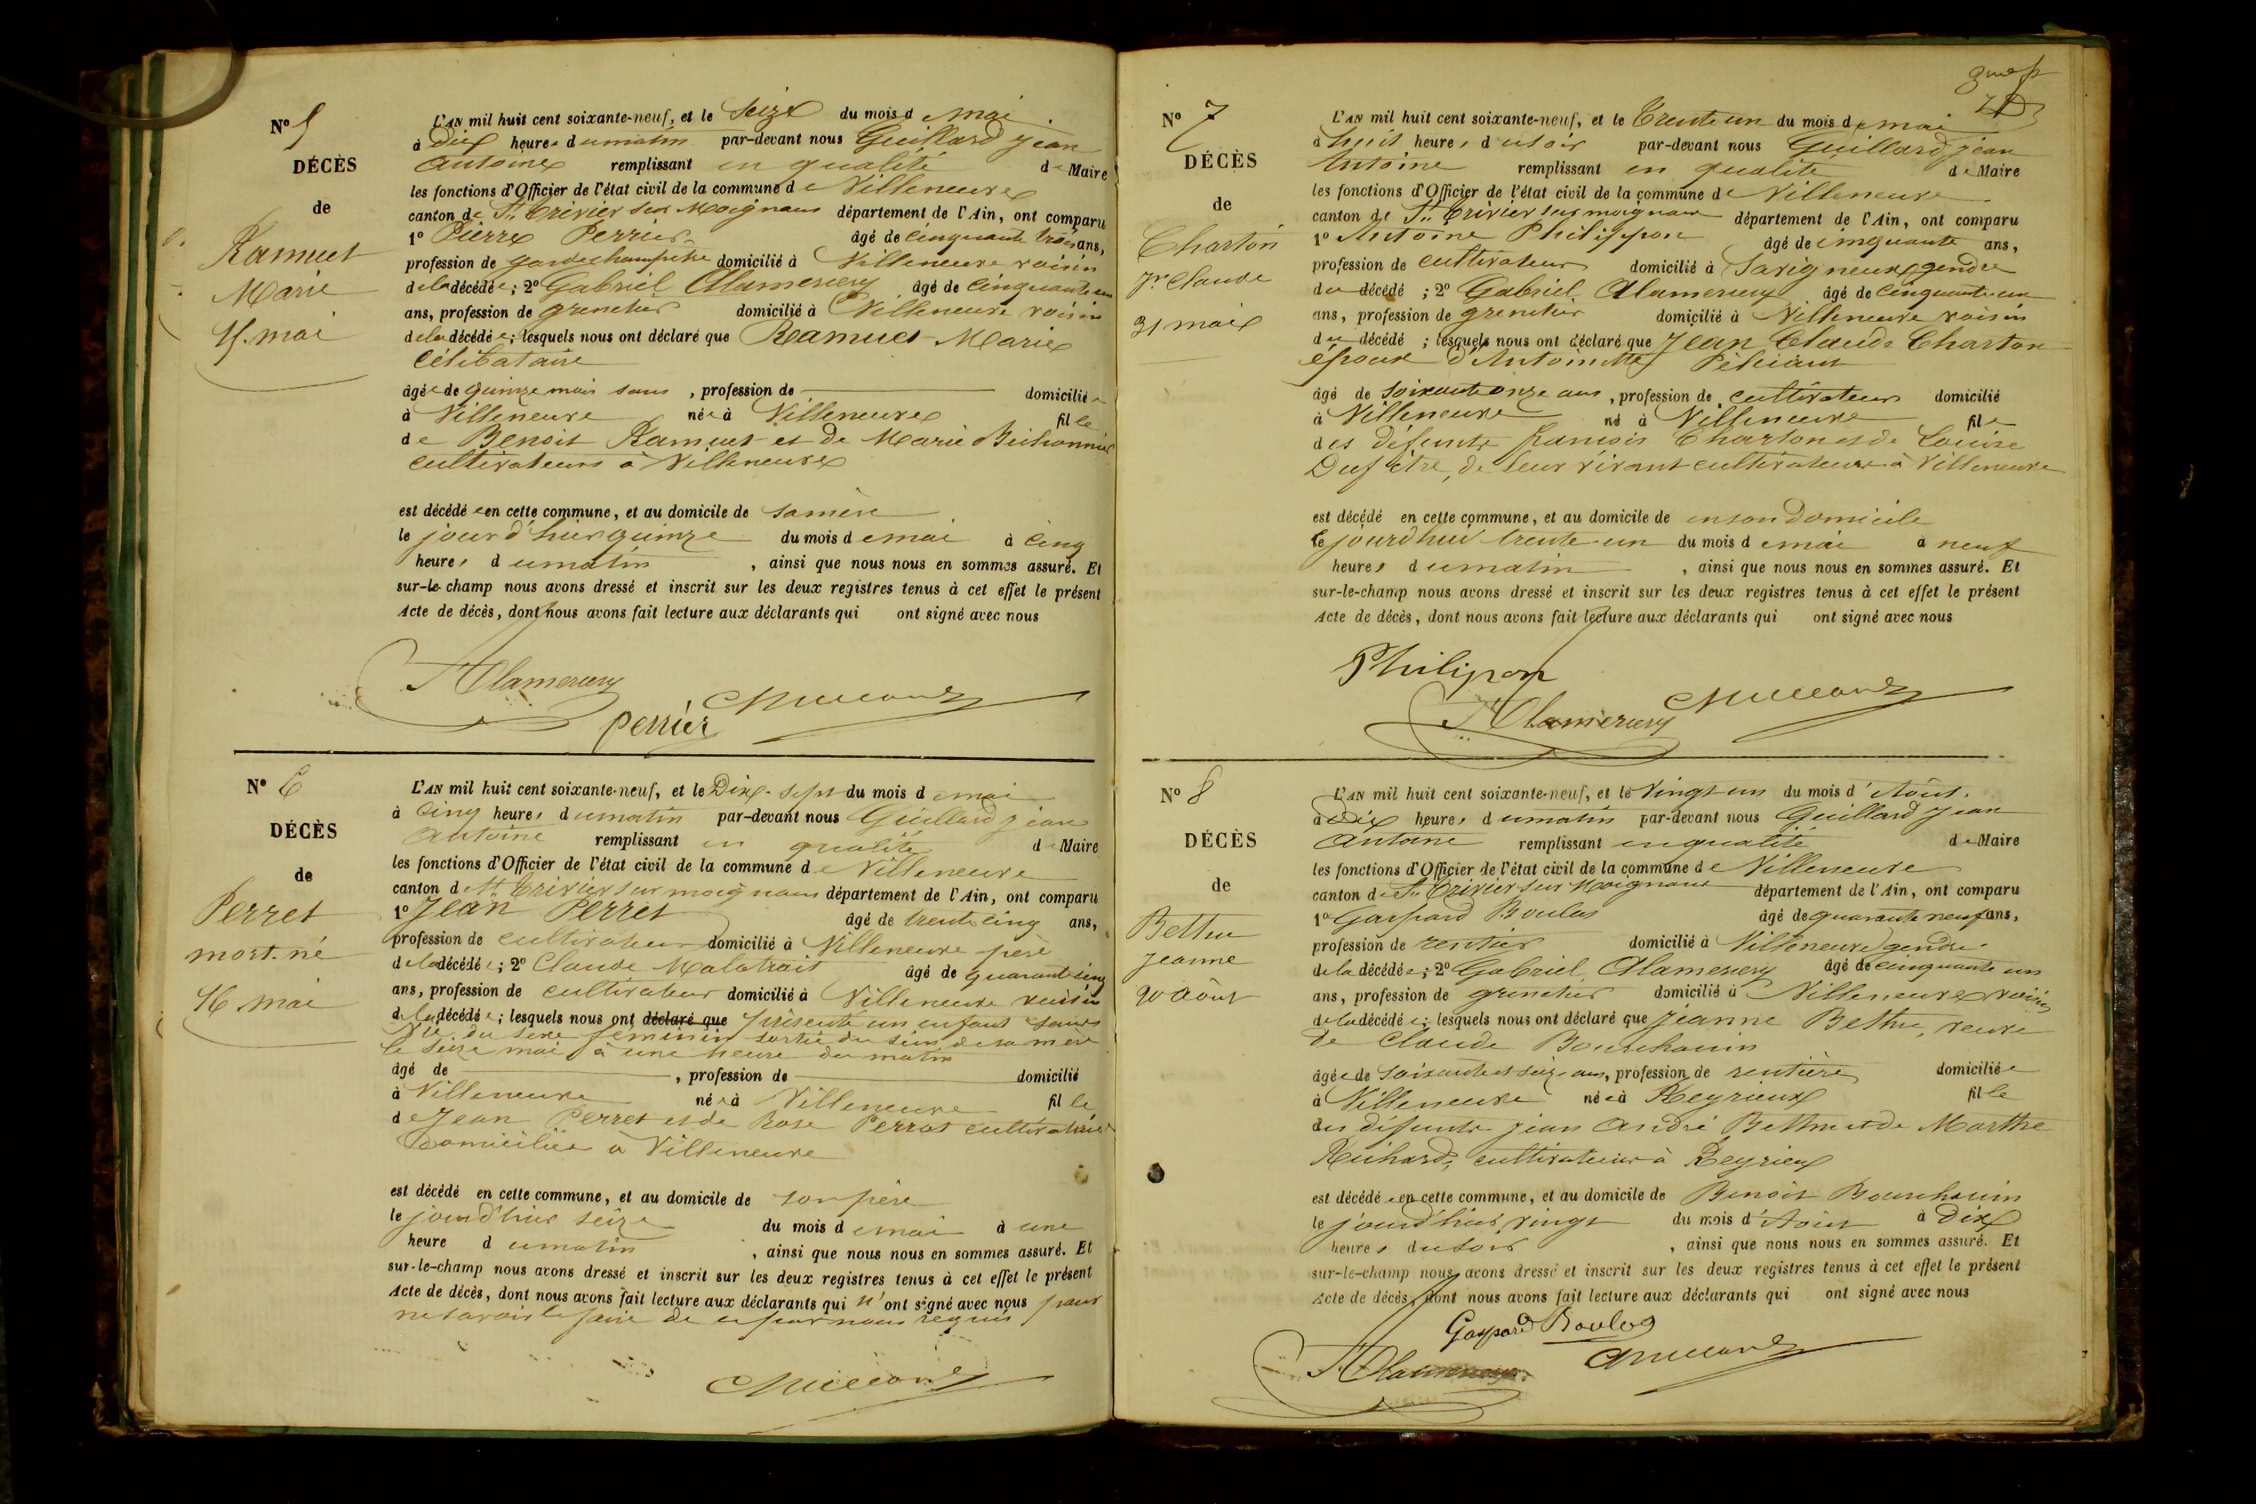 Nº 5
DÉCÈS
de
Ramuet
Marie
15 mai
L'AN mil huit cent soixante-neuf, et le Seize du mois de mai
à Dix heures du matin par-devant nous Guillard jean
Antoine remplissant en qualité de Maire
les fonctions d'Officier de l'état civil de la commune de Villeneuve
canton de St. Trivier sur Moignans département de l'Ain, ont comparu
1º Pierre Perrier âgé de cinquante trois ans,
profession de garde champêtre domicilié à Villeneuve voisin
de la décédée; 2º Gabriel Alamercery âgé de cinquante un
ans, profession de grenetier domicilié à Villeneuve voisin
de la décédée; lesquels nous ont déclaré que Ramuet Marie
célibataire
âgée de quinze mois sans, profession de domiciliée
à Villeneuve née à Villeneuve fille
de Benoit Ramuet et de Marie
cultivateurs à Villeneuve
est décédée en cette commune, et au domicile de sa mère
le jour d'hier quinze du mois de mai à cinq
heures du matin, ainsi que nous nous en sommes assuré. Et
sur-le-champ nous avons dressé et inscrit sur les deux registres tenus à cet effet le présent
Acte de décès, dont nous avons fait lecture aux déclarants qui ont signé avec nous
Alamercery
Perrier
Nº 6
DÉCÈS
de
Perret
mort-né
16 mai
L'AN mil huit cent soixante-neuf, et le Dix-sept du mois de mai
à cinq heures du matin par-devant nous Guillard jean
Antoine remplissant en qualité de Maire
les fonctions d'Officier de l'état civil de la commune de Villeneuve
canton de St. Trivier sur moignans département de l'Ain, ont comparu
1º Jean Perret âgé de trente cinq ans,
profession de cultivateur domicilié à Villeneuve père
de la décédée; 2º Claude Malatrait âgé de quarante cinq
ans, profession de cultivateur domicilié à Villeneuve voisin
de la décédée; lesquels nous ont déclaré que présenté un enfant sans
vie du sexe féminin sortie du sein de sa mère
le seize mai à une heure du matin
âgé de , profession de domicilié
à Villeneuve née à Villeneuve fille
de Jean Perret et de Rose Perrat cultivateurs
domiciliés à Villeneuve
est décédé en cette commune, et au domicile de son père
le jour d'hier seize du mois de mai à une
heure du matin, ainsi que nous nous en sommes assuré. Et
sur-le-champ nous avons dressé et inscrit sur les deux registres tenus à cet effet le présent
Acte de décès, dont nous avons fait lecture aux déclarants qui n'ont signé avec nous pour
ne savoir le faire de ce par nous requis
Nº 7
DÉCÈS
de
Charton
Jn. Claude
31 mai
L'AN mil huit cent soixante-neuf, et le Trente un du mois de mai
à huit heures du soir par-devant nous Guillard jean
Antoine remplissant en qualité de Maire
les fonctions d'Officier de l'état civil de la commune de Villeneuve
canton de St. Trivier sur moignans département de l'Ain, ont comparu
1º Antoine Philippon âgé de cinquante ans,
profession de cultivateur domicilié à Savigneux gendre
du décédé; 2º Gabriel Alamercery âgé de cinquante un
ans, profession de grenetier domicilié à Villeneuve voisin
du décédé; lesquels nous ont déclaré que Jean Claude Charton
époux d'Antoinette
âgé de soixante onze ans, profession de cultivateur domicilié
à Villeneuve né à Villeneuve fils
des défunts François Charton et de Louise
Dufêtre, de leur vivant cultivateurs à Villeneuve
est décédé en cette commune, et au domicile de en son domicile
le jourd'hui trente-un du mois de mai à neuf
heures du matin, ainsi que nous nous en sommes assuré. Et
sur-le-champ nous avons dressé et inscrit sur les deux registres tenus à cet effet le présent
Acte de décès, dont nous avons fait lecture aux déclarants qui ont signé avec nous
Philipon
Alamercery
Nº 8
DÉCÈS
de
Bethu
Jeanne
20 Août
L'AN mil huit cent soixante-neuf, et le Vingt un du mois d'Août
à Dix heures du matin par-devant nous Guillard Jean
Antoine remplissant en qualité de Maire
les fonctions d'Officier de l'état civil de la commune de Villeneuve
canton de St. Trivier sur Moignans département de l'Ain, ont comparu
1º Gaspard Boulas âgé de quarante neuf ans,
profession de rentier domicilié à Villeneuve gendre
de la décédée; 2º Gabriel Alamercery âgé de cinquante un
ans, profession de grenetier domicilié à Villeneuve voisin
de la décédée; lesquels nous ont déclaré que Jeanne Bethu, veuve
de Claude Bourchanin
âgée de soixante et seize ans, profession de rentière domiciliée
à Villeneuve née à Reyrieux fille
des défunts jean André Bethu et de Marthe
Richard, cultivateurs à Reyrieux
est décédée en cette commune, et au domicile de Benoit Bourchanin
le jour d'hier vingt du mois d'Août à Dix
heures du soir, ainsi que nous nous en sommes assuré. Et
sur-le-champ nous avons dressé et inscrit sur les deux registres tenus à cet effet le présent
Acte de décès, dont nous avons fait lecture aux déclarants qui ont signé avec nous
Gaspard Boulas